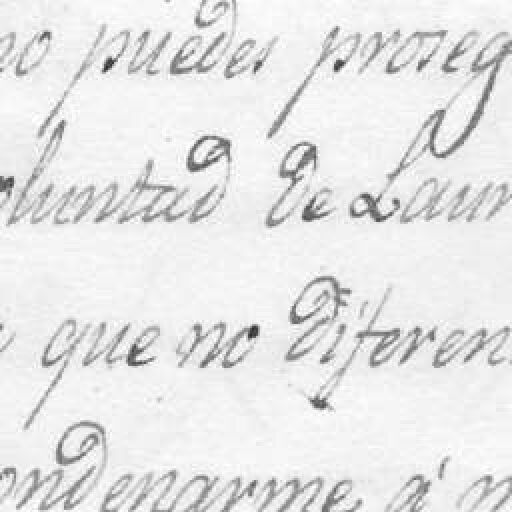 no puedes proseg
oluntad de Laur
que no diferen
ondenarme á m